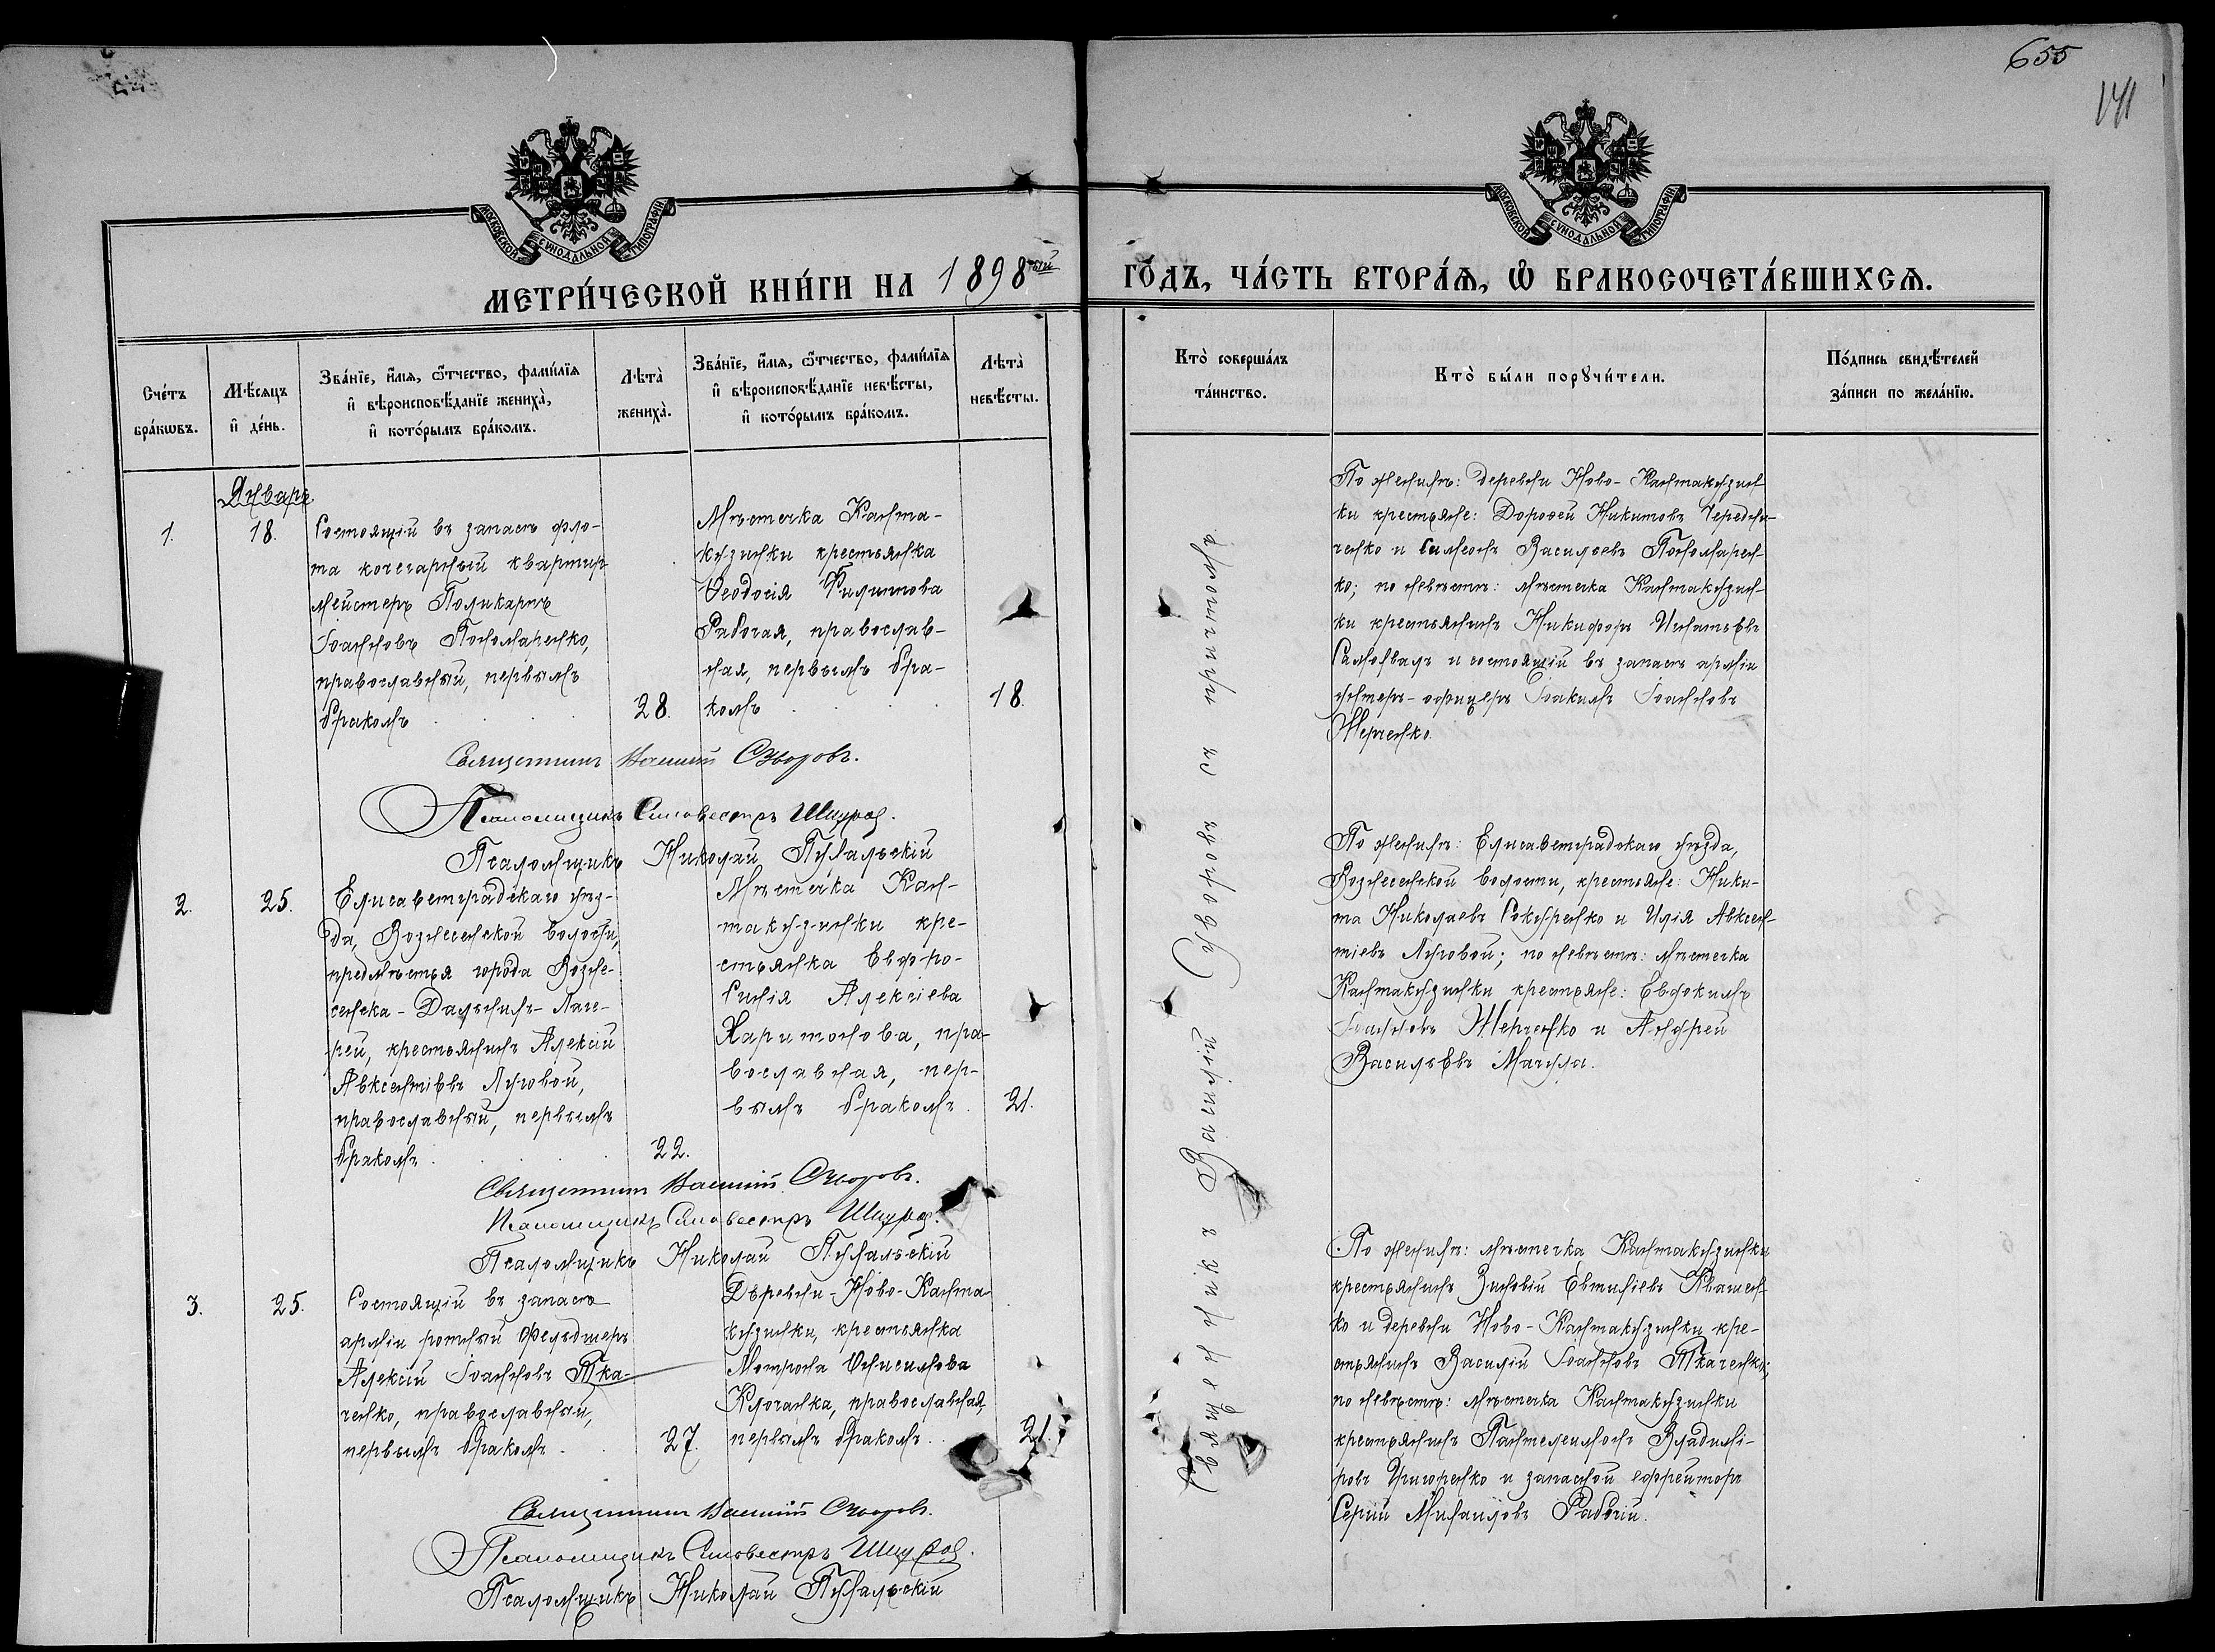 655
141
МОСКОВСКОЙ СѴНОДАЛЬНОЙ ТИПОГРАФІИ
МОСКОВСКОЙ СѴНОДАЛЬНОЙ ТИПОГРАФІИ
МЕТРИ́ЧЕСКОЙ КНИ́ГИ НА 1898ый
ГО́ДЪ, ЧА́СТЬ ВТОРА́Ѧ, Ѡ҆ БРАКОСОЧЕТА́ВШИХСѦ.
Сче́тъ
бра́кѡвъ.
Мѣ́сяцъ
и҆ де́нь.
Зва́нїе, и҆́мѧ, ѻ҆́тчество, фами́лїѧ
и҆ вѣроисповѣ́данїе жениха̀,
и҆ кото́рымъ бра́комъ.
Лѣта̀
жениха̀.
Зва́нїе, и҆́мѧ, ѻ҆́тчество, фами́лїѧ
и҆ вѣроисповѣ́данїе невѣ́сты,
и҆ кото́рымъ бра́комъ.
Лѣта̀
невѣ́сты.
Кто̀ соверша́лъ
та́инство.
Кто̀ бы́ли порꙋчи́тели.
По́дпись свидѣ́телей
за́писи по жела́нїю.
Январь
1.
18.
Состоящій въ запасѣ фло-
та кочегарный квартир-
мейстеръ Поликарпъ
Іоанновъ Пономаренко,
православный, первымъ
бракомъ
28.
Мѣстечка Канта-
кузинки крестьянка
Ѳеодосія Филиппова
Рабочая, православ-
ная, первымъ бра-
комъ
18.
По женихѣ: деревни Ново-Кантакузин-
ки крестьяне: Дороѳей Никитовъ Чередни-
ченко и Симеонъ Васильевъ Пономарен-
ко; по невѣстѣ: мѣстечка Кантакузин-
ки крестьянинъ Никифоръ Игнатьевъ
и состоящій въ запасѣ арміи
унтеръ-офицеръ Іоакимъ Іоанновъ
Жерченко.
Священникъ
Псаломщикъ Силовестръ
Псаломщикъ Николай
2.
25.
Елисаветградскаго уѣз-
да, Вознесенской волости,
предмѣстья города Возне-
сенска-Дальнихъ-Лаге-
рей, крестьянинъ Алексій
Авксентіевъ Луговой,
православный, первымъ
бракомъ
22.
Мѣстечка Кан-
такузинки кре-
стьянка Евфро-
синія Алексіева
Харитонова, пра-
вославная, пер-
вымъ бракомъ.
21.
По женихѣ: Елисаветградскаго уѣзда,
Вознесенской волости, крестьяне: Ники-
та Николаевъ Сокуренко и Илія Авксен-
тіевъ Луговой; по невѣстѣ: мѣстечка
Кантакузинки крестьяне: Евдокимъ
Іоанновъ Жерченко и Андрей
Васильевъ Мачула.
Священникъ
Псаломщикъ Силовестръ
Псаломщикъ Николай
3.
25.
Состоящій въ запасѣ
арміи ротный фельдшеръ
Алексій Іоанновъ Тка-
ченко, православный,
первымъ бракомъ
27.
Деревни-Ново-Канта-
кузинки, крестьянка
Матрона Онисимова
Клочанка, православная,
первымъ бракомъ
21.
По женихѣ: мѣстечка Кантакузинки
крестьянинъ Зиновій Евтихіевъ Квашен-
ко и деревни Ново-Кантакузинки кре-
стьянинъ Василій Іоанновъ Ткаченко;
по невѣстѣ: мѣстечка Кантакузинки
крестьянинъ Пантелеимонъ Владимі-
ровъ Григоренко и запасной ефрейторъ
Сергій Михаиловъ Рабочій.
Священникъ
Псаломщикъ Силовестръ
Псаломщикъ Николай
Священникъ Василій съ причтомъ